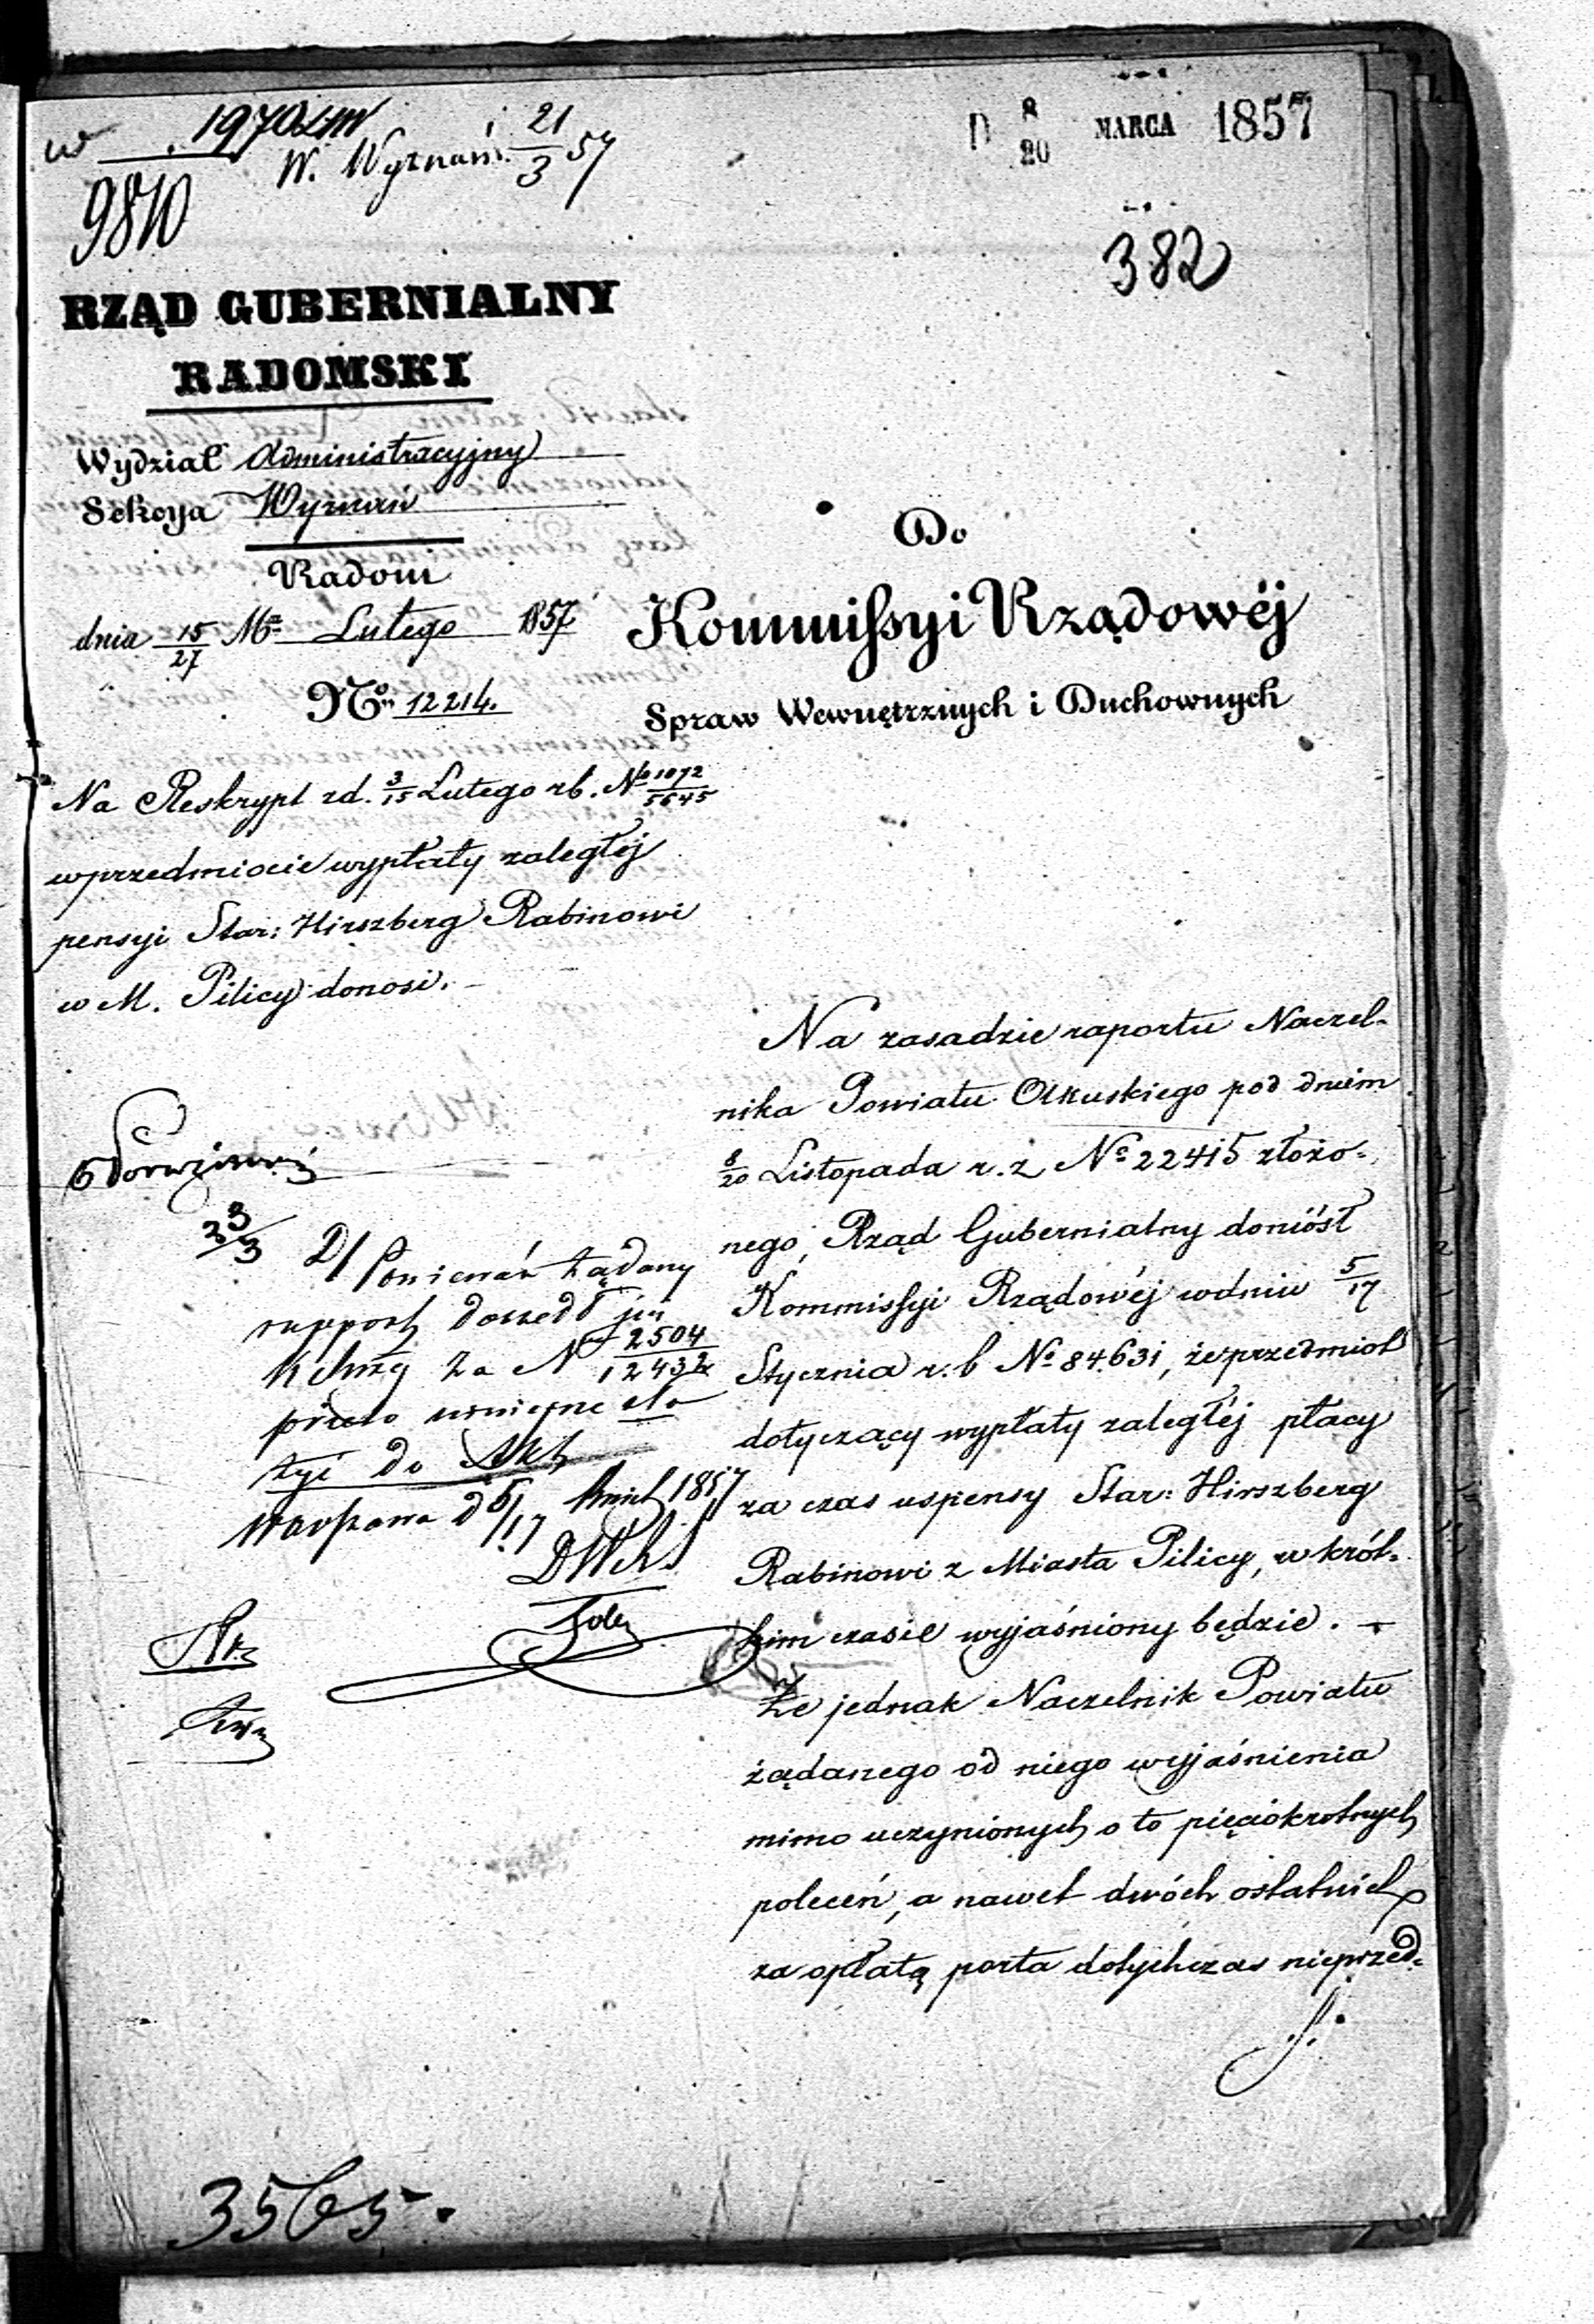 W. Wyznań 21/3 57
9810
D 8/20 MARCA 1857
382
RZĄD GUBERNIALNY
RADOMSKI
Wydział Administracyjny
Sekcya Wyznań
Radom
dnia 15/27 Mca Lutego 1857
No 12214.
Do
Kommissyi Rządowéj
Spraw Wewnętrznych i Duchownych
Na Reskrypt z d. 3/15 Lutego r b. No 1072/5645
w przedmiocie wypłaty zaległéj
pensyi Star: Hirszberg Rabinowi
w M. Pilicy donosi. –
Na zasadzie raportu Naczel-
nika Powiatu Olkuskiego pod dniem
8/20 Listopada r. z No 22415 złożo-
nego, Rząd Gubernialny doniósł
Kommissyi Rządowéj w dniu 5/17
Stycznia r. b No 84631, że przedmiot
dotyczący wypłaty zaległéj płacy
za czas uspensy Star: Hirszberg
Rabinowi z Miasta Pilicy, w krót-
kim czasie wyjaśniony będzie. –
Że jednak Naczelnik Powiatu
żądanego od niego wyjaśnienia
mimo uczynionych o to pięciokrotnych
poleceń, a nawet dwóch ostatnich
za opłatą porta dotychczas nieprzed-
23/3
D/ Ponieważ żądany
rapport doszedł już
za N 2504/12432
do Akt
Warszawa d 5/17 1857
3565.